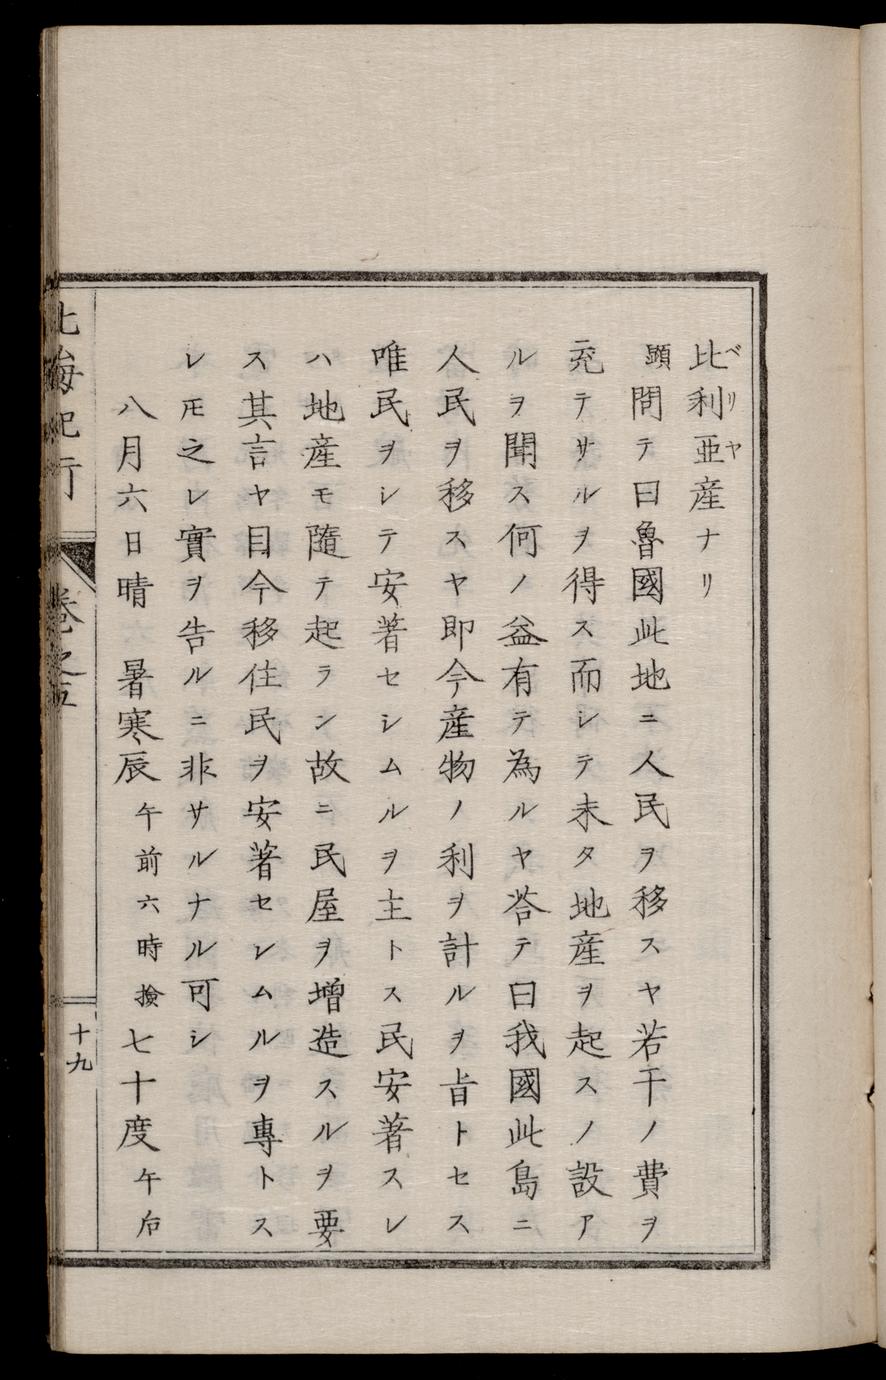 比利亜産ナリ
ベリヤ
顕問テ曰魯國此地ニ人民ヲ移スヤ若干ノ費ヲ
充テサルヲ得ス而シテ未タ地産ヲ起スノ設ア
ルヲ聞ス何ノ益有テ為ルヤ荅テ曰我國此島ニ
人民ヲ移スヤ即今産物ノ利ヲ計ルヲ旨トセス
唯民ヲシテ安著セシムルヲ主トス民安著スレ
ハ地産モ隨テ起ラン故ニ民屋ヲ增造スルヲ要
ス其言ヤ目今移住民ヲ安著セレムルヲ專トス
レ𪜈之レ實ヲ告ルニ非サルナル可シ
八月六日晴 暑寒辰午前六時撿七十度午后
北海紀行 卷之五 十九